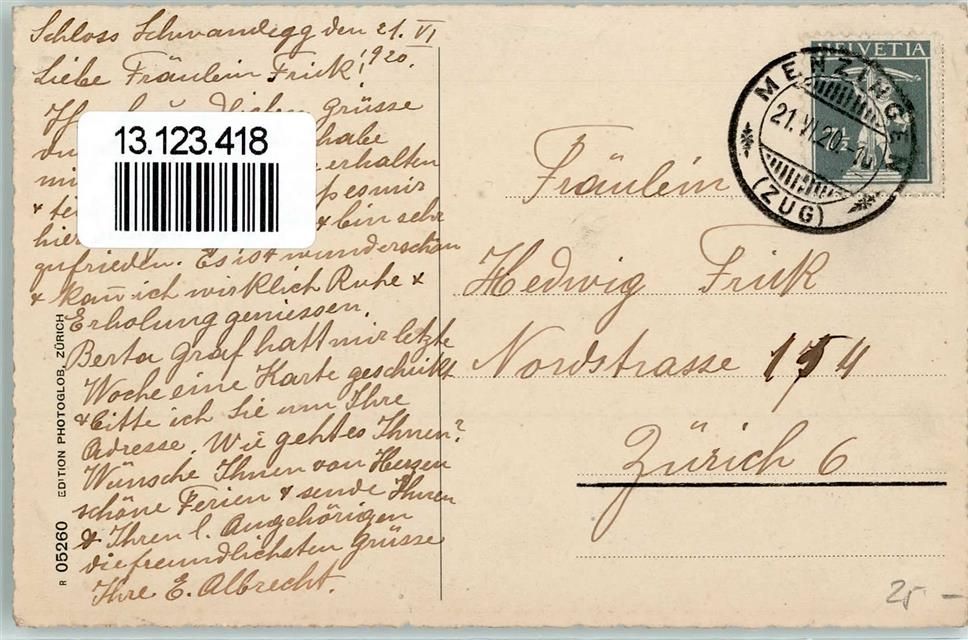 Schloss Schwandegg den 21. VI
1920.
Liebe Fräulein Frick!
Grüsse
habe
erhalten
es mir
hier & bin sehr
zufrieden. Es ist wunderschön
& kan̄ ich wirklich Ruhe &
Erholung geniessen.
Berta Graf hatt mir letzte
Woche eine Karte geschickt
& bitte ich Sie um Ihre
Adresse. Wie geht es Ihnen?
Wünsche Ihnen von Herzen
schöne Ferien & sende Ihnen
& Ihren l. Angehörigen
die freundlichsten Grüsse
Ihre E. Albrecht.
13.123.418
R 05260 EDITION PHOTOGLOB, ZÜRICH
HELVETIA
MENZINGEN
21.VI.20.
(ZUG)
Fräulein
Hedwig Frick
Nordstrasse 154
Zürich 6
25.-